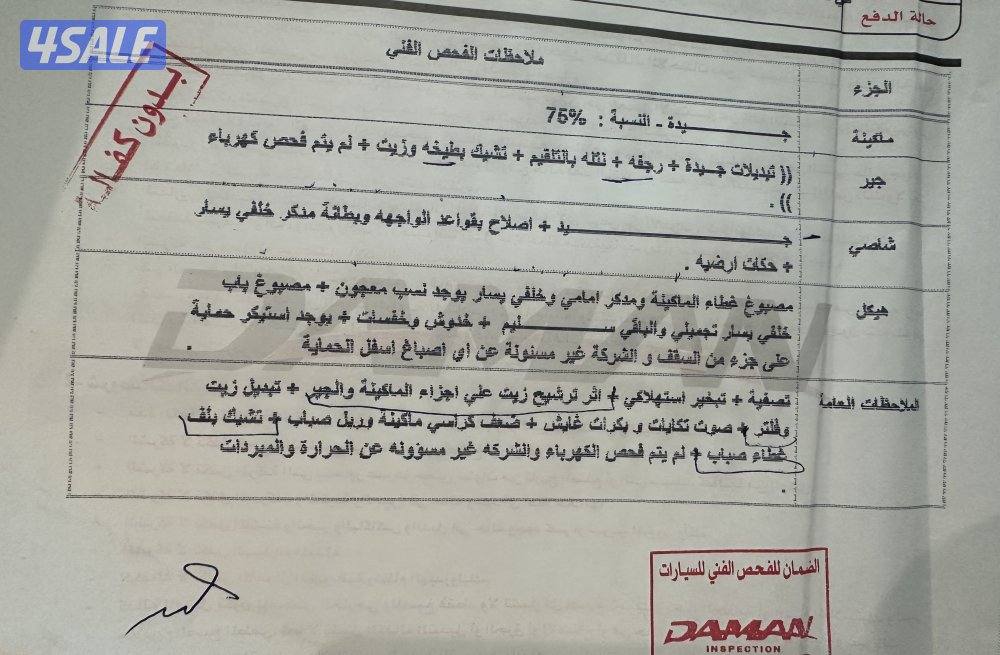 4SALE
حالة الدفع
بدون كفالة
الجزء
ملاحظات الفحص الفني
ماكينة
جـــيدة - النسبة : 75%
جير
(( تبديلات جـيدة + رجفه + نتله بالتلقيم + تشيك بطيخه وزيت + لم يتم فحص كهرباء
)) .
شاصي
جـــيد + اصلاح بقواعد الواجهه وبطانة مدكر خلفي يسار
+ حكات ارضيه .
هيكل
مصبوغ غطاء الماكينة ومدكر امامي وخلفي يسار يوجد نسب معجون + مصبوغ باب
خلفي يسار تجميلي والباقي ســـليم + خدوش وخفسات + يوجد استيكر حماية
على جزء من السقف و الشركة غير مسئولة عن اي اصباغ اسفل الحماية .
الملاحظات العامة
تصفية + تبخير استهلاكي + اثر ترشيح زيت علي اجزاء الماكينة والجير + تبديل زيت
وفلتر + صوت تكايات و بكرات قايش + ضعف كراسي ماكينة وربل صباب + تشيك بلف
غطاء صباب + لم يتم فحص الكهرباء والشركه غير مسؤوله عن الحرارة والمبردات
.
الضمان للفحص الفني للسيارات
DAMAN
INSPECTION
DAMAN